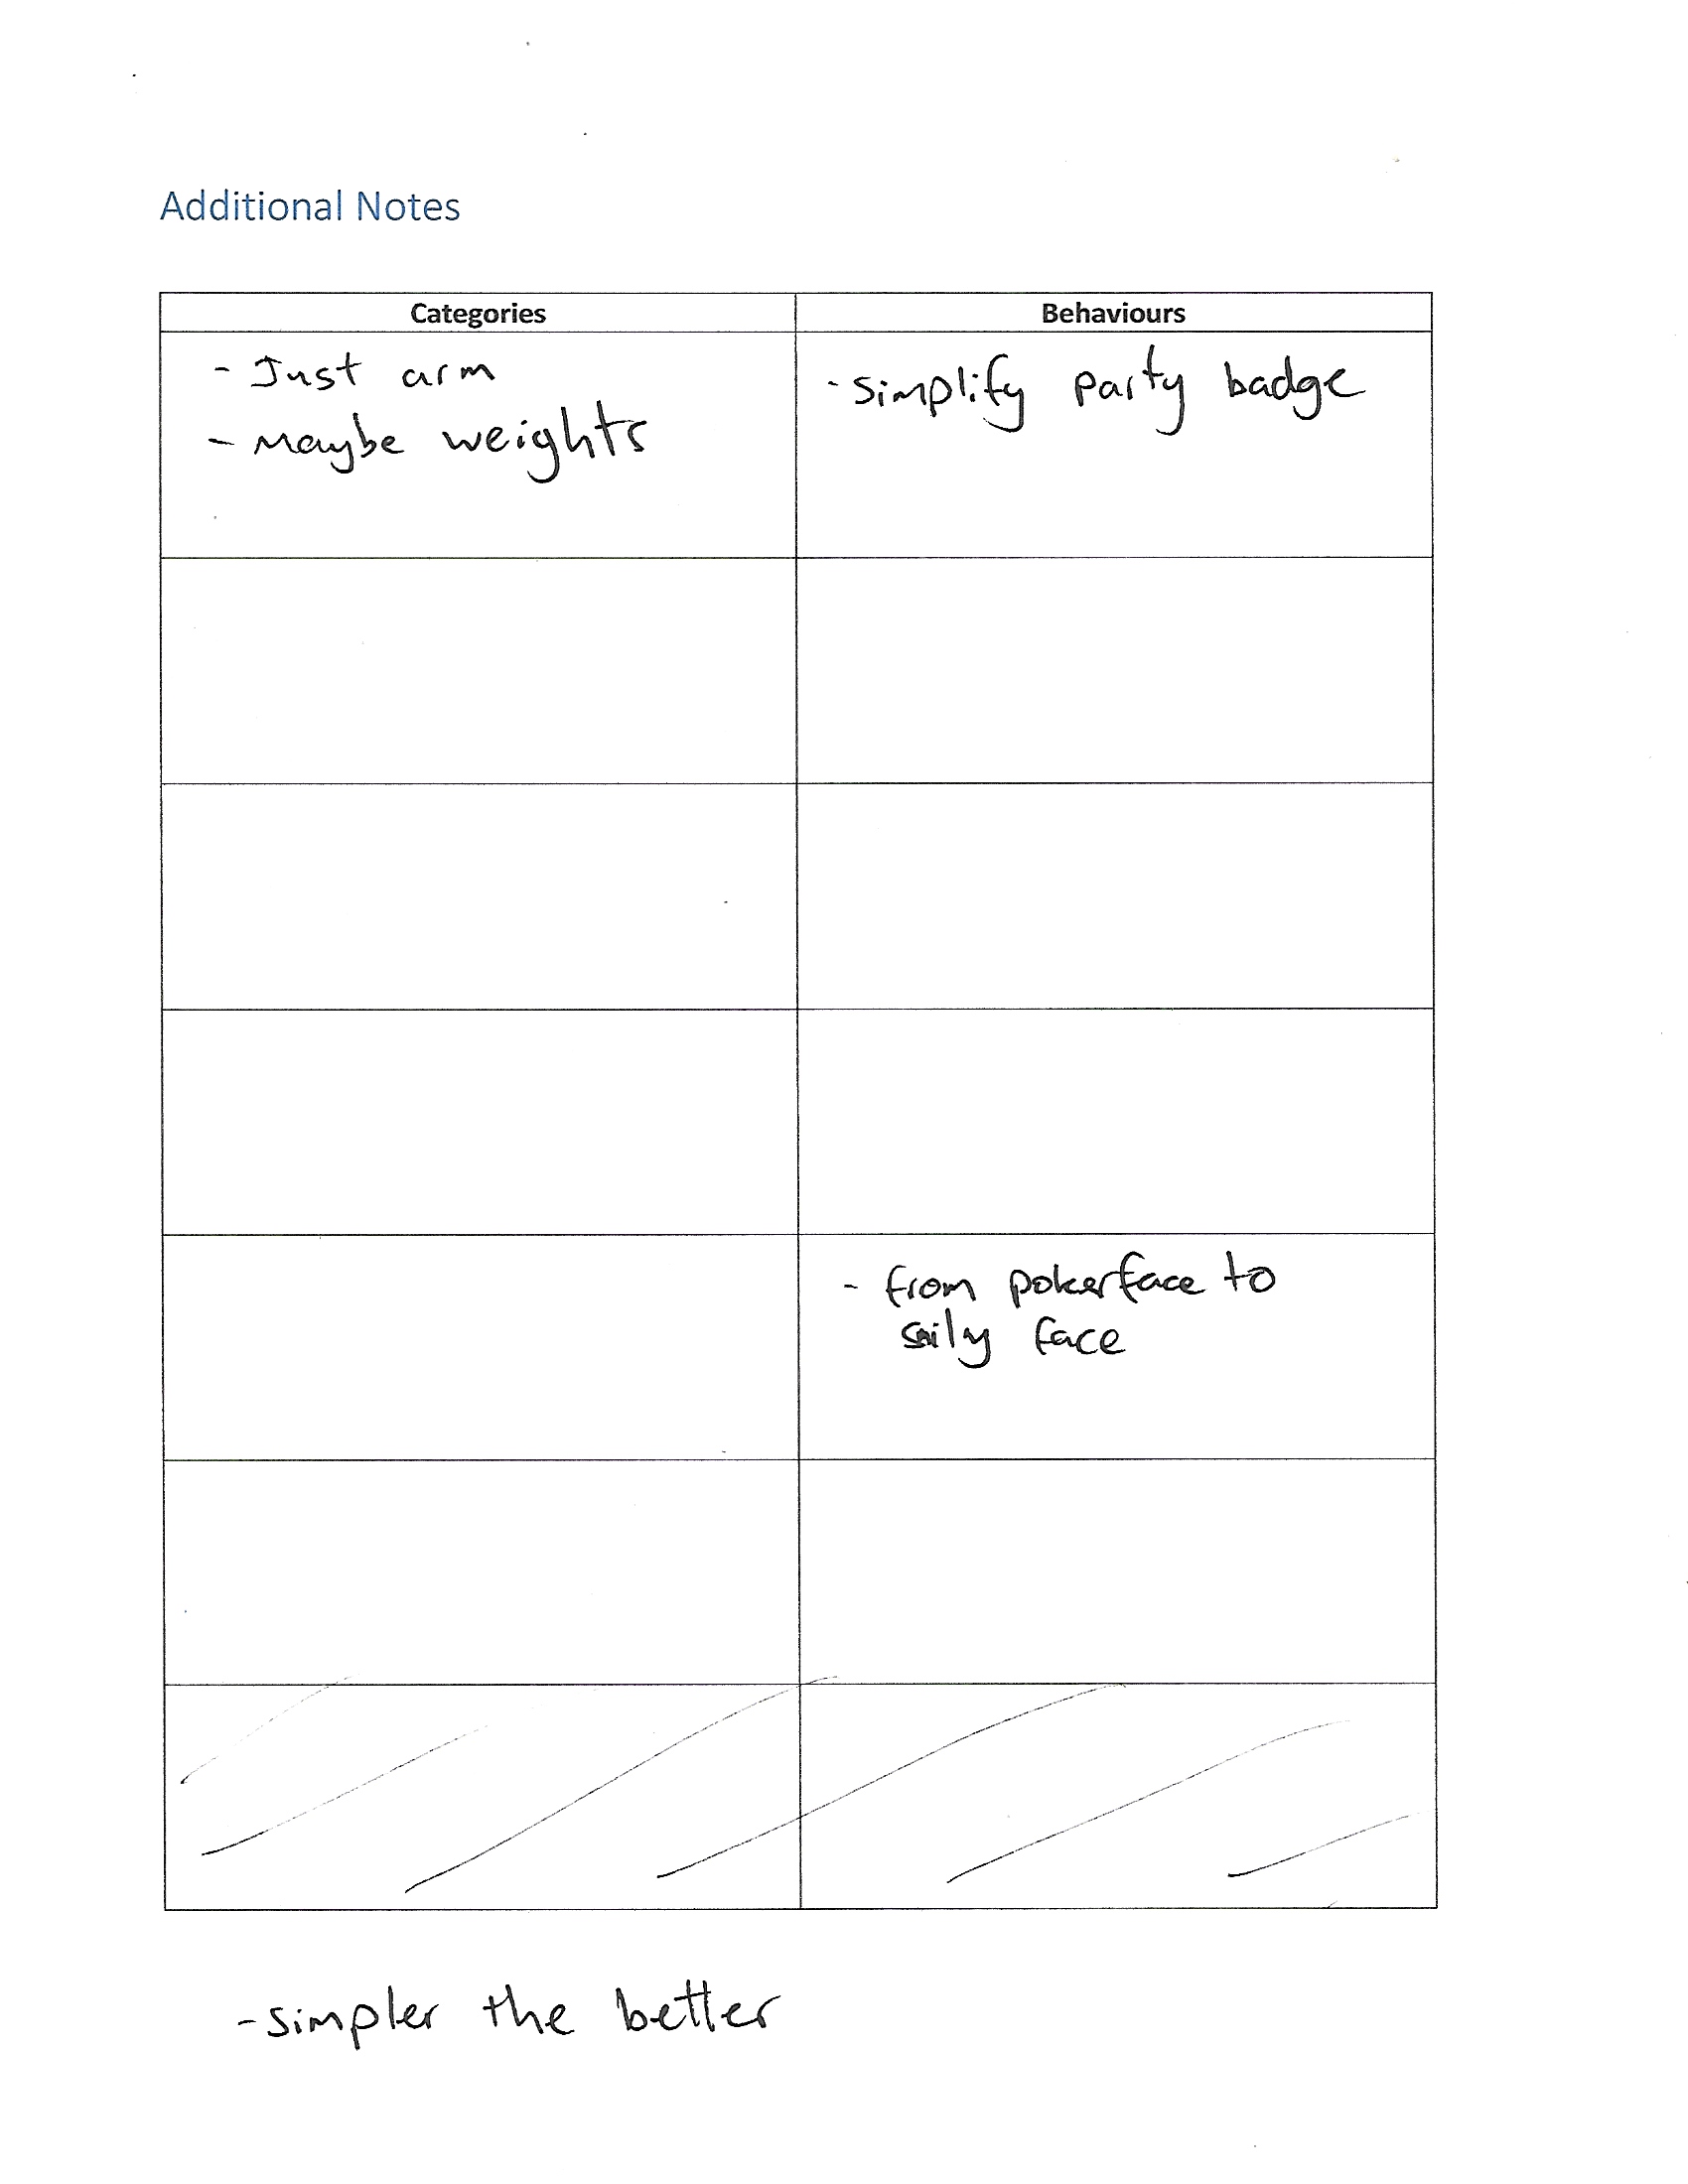 Additional Notes
Categories
Behaviours
- Just arm
- Maybe weights
- Simplify party badge
- from pokerface to
face
- simpler the better